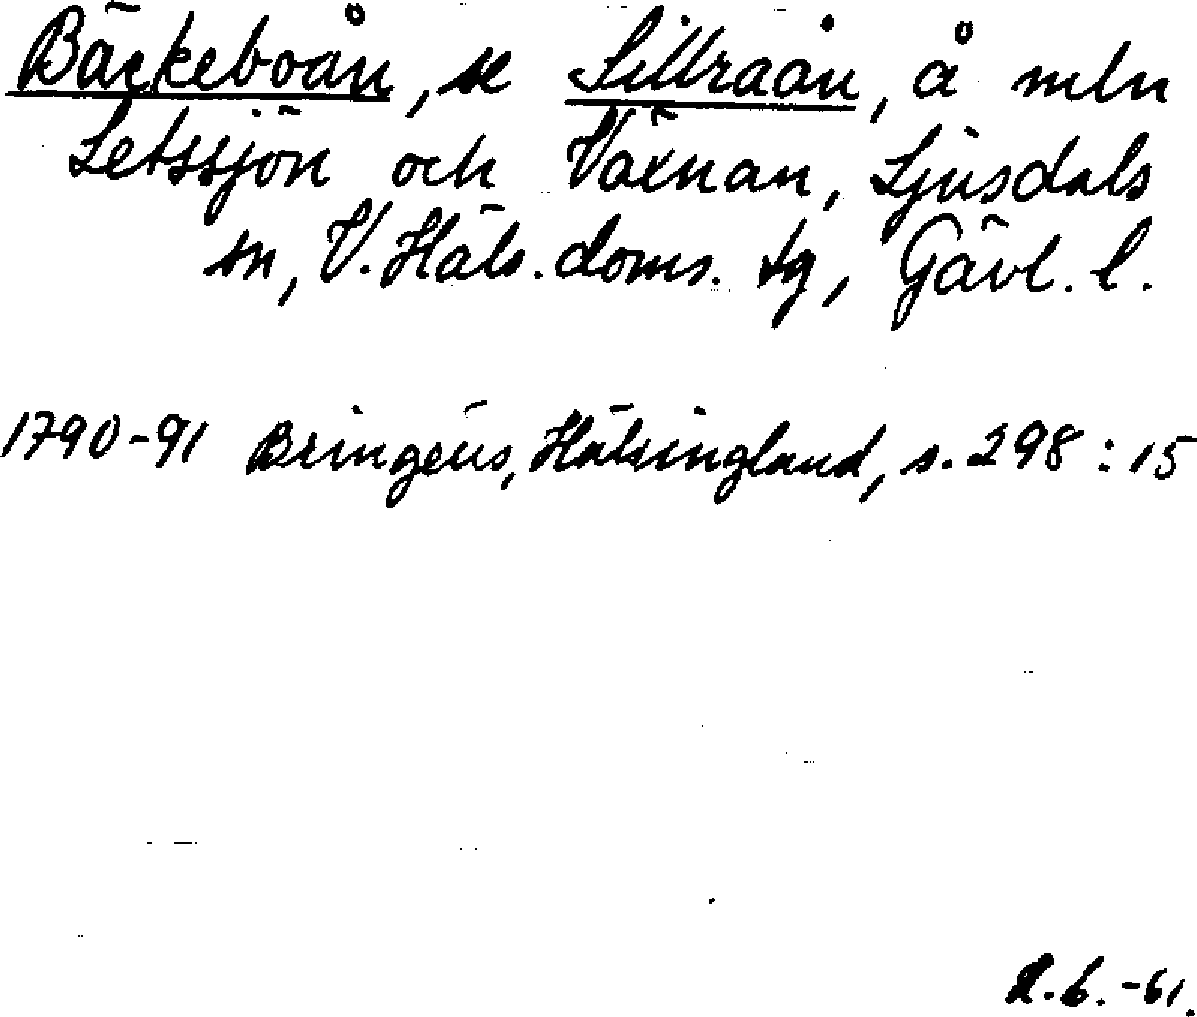 Bäckeboån, se Sillraån, å mln
Letssjön och Växnan, Ljusdals
sn, V. Häls. doms. tg, Gävl. l.
1790-91 Bringéus, Hälsingland, s. 298 : 15
R.b. -61.